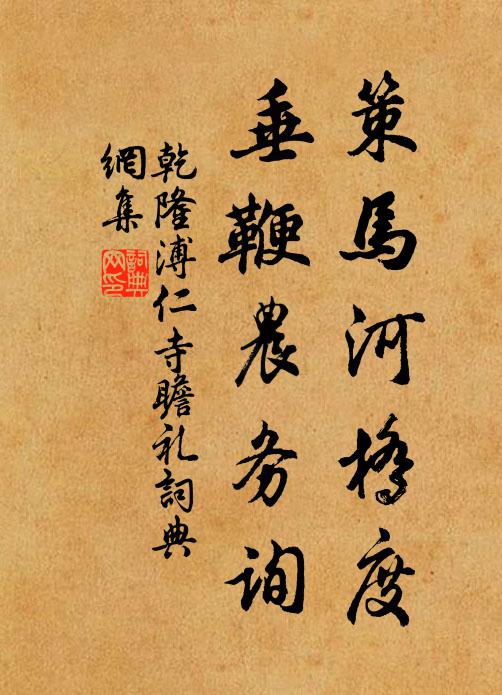 策馬河橋度
垂鞭農务询
乾隆溥仁寺瞻礼詞典
網集
詞典
网印